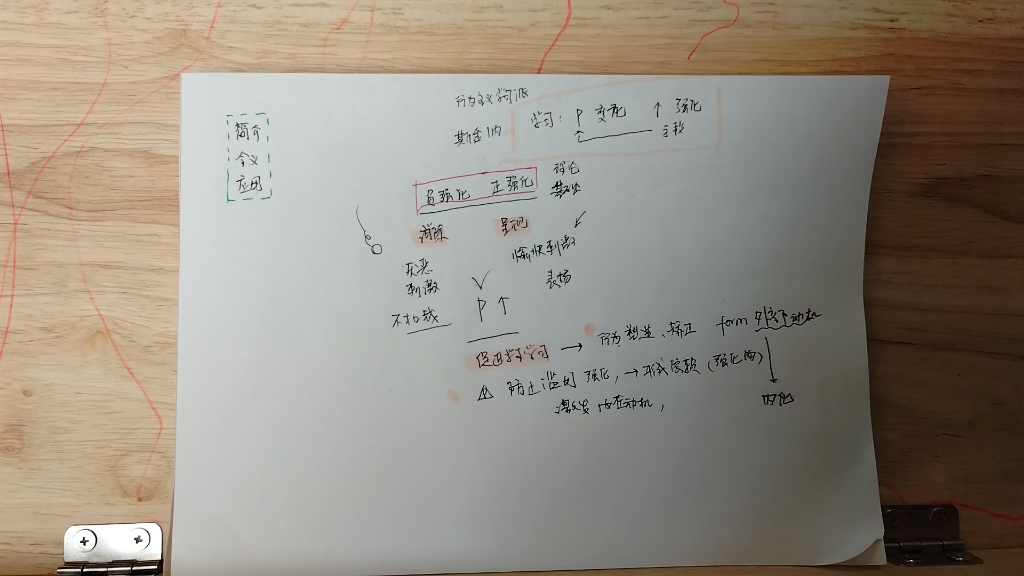 简介
含义
应用
行为主义学习派
斯金纳
学习: P 变化 ↑ 强化
负强化 正强化
消除 呈现
厌恶
刺激
愉快刺激
表扬
P ↑
促进学习 → 行为塑造、矫正 form 外部动机
⚠ 防止滥用强化, → 形成依赖 (强化物)
激发内在动机,
内化